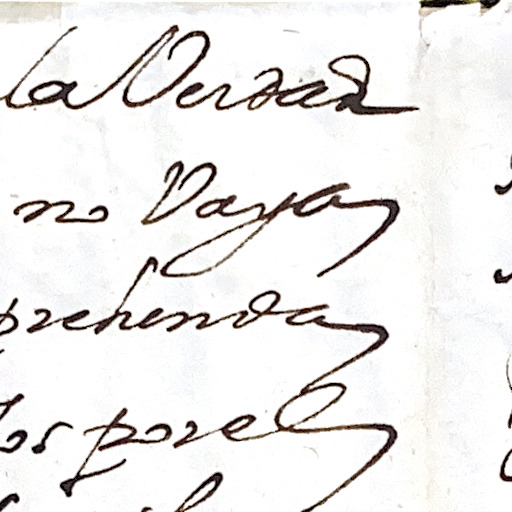 la Verdad
no Vaya
prehenda
los por el